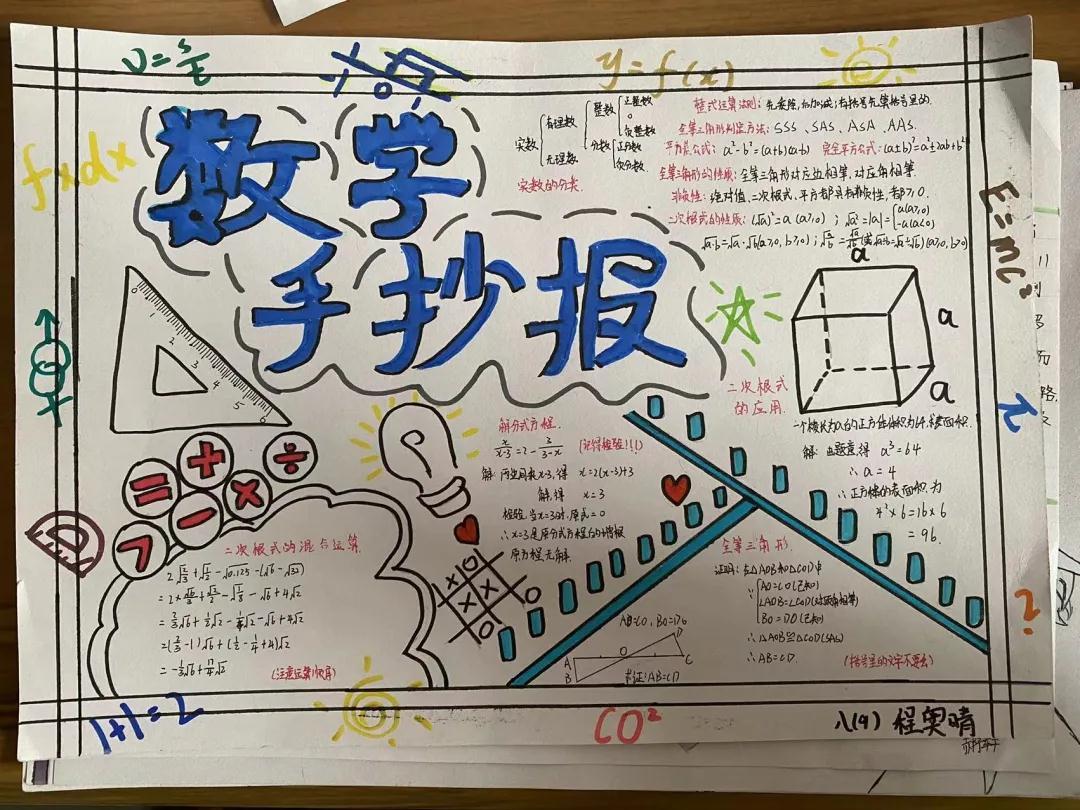 v=s/t
y=f(x)
fxdx
数学
手抄报
E=mc²
实数
有理数
无理数
整数
分数
正整数
0
负整数
正分数
负分数
实数的分类.
整式运算法则: 先乘除,后加减;有括号先算括号里的.
全等三角形判定方法: SSS、SAS、ASA、AAS.
平方差公式: a²-b²=(a+b)(a-b) 完全平方公式:(a±b)²=a²±2ab+b²
全等三角形的性质: 全等三角形对应边相等,对应角相等
非负性: 绝对值、二次根式、平方都具有非负性,都≥0.
二次根式的性质: (√a)²=a (a≥0) ; √a²=|a|={a(a≥0) -a(a<0)
0
1
2
3
4
5
a
a
a
二次根式
的应用.
一个棱长为a的正方体体积为64,求表面积.
解: 由题意,得 a³=64
∴ a=4
∴ 正方体的表面积为
4²×6=16×6
=96.
解分式方程.
x/x-3=2-3/3-x (记得检验!!!)
解: 两边同乘x-3,得 x=2(x-3)+3
解,得 x=3
检验: 当x=3时,原式=0
∴x=3是原分式方程的增根
原方程无解.
= + ÷
- ×
二次根式的混合运算.
2√2/3+√1/2-√0.125-(√6-√32)
=(2/3-1)√6+(1/2-1/4+4)√2
=-1/3√6+17/4√2
(注意运算顺序)
X O
X X O
X
O
全等三角形.
证明: 在△AOB和△COD中
AO=CO(已知)
∠AOB=∠COD(对顶角相等)
BO=DO(已知)
∴△AOB≌△COD(SAS)
∴AB=CD.
(括号里的文字不要忘)
AO=CO, BO=DO
A
B
O
D
C
求证:AB=CD
1+1=2
CO²
八(9) 程奥晴